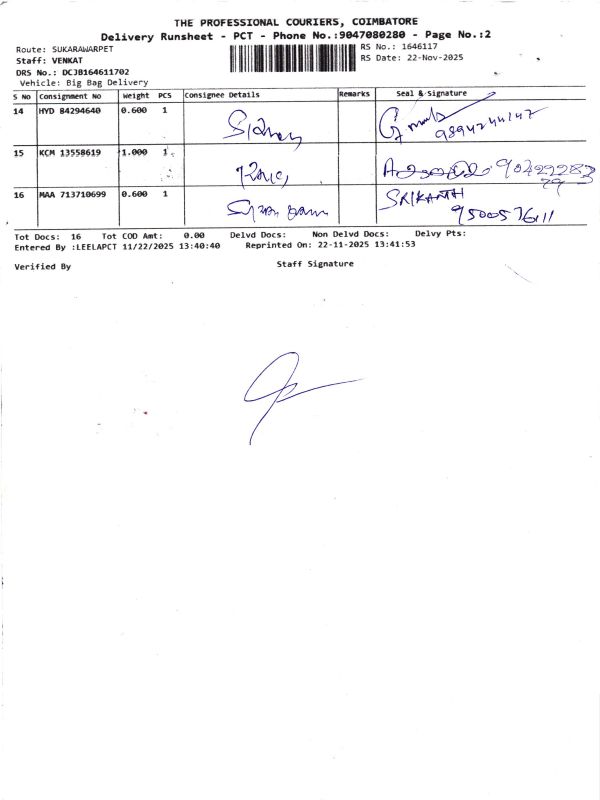 THE PROFESSIONAL COURIERS, COIMBATORE
Delivery Runsheet - PCT - Phone No.:9047080280 - Page No.:2
Route: SUKARAWARPET
RS No.: 1646117
Staff: VENKAT
RS Date: 22-Nov-2025
DRS No.: DCJB164611702
Vehicle: Big Bag Delivery
S No Consignment No Weight PCS Consignee Details Remarks Seal & Signature
14 HYD 84294640 0.600 1
15 KCM 13558619 1.000 1
16 MAA 713710699 0.600 1 SRIKANTH
9500576111
Tot Docs: 16 Tot COD Amt: 0.00 Delvd Docs: Non Delvd Docs: Delvy Pts:
Entered By :LEELAPCT 11/22/2025 13:40:40 Reprinted On: 22-11-2025 13:41:53
Verified By Staff Signature